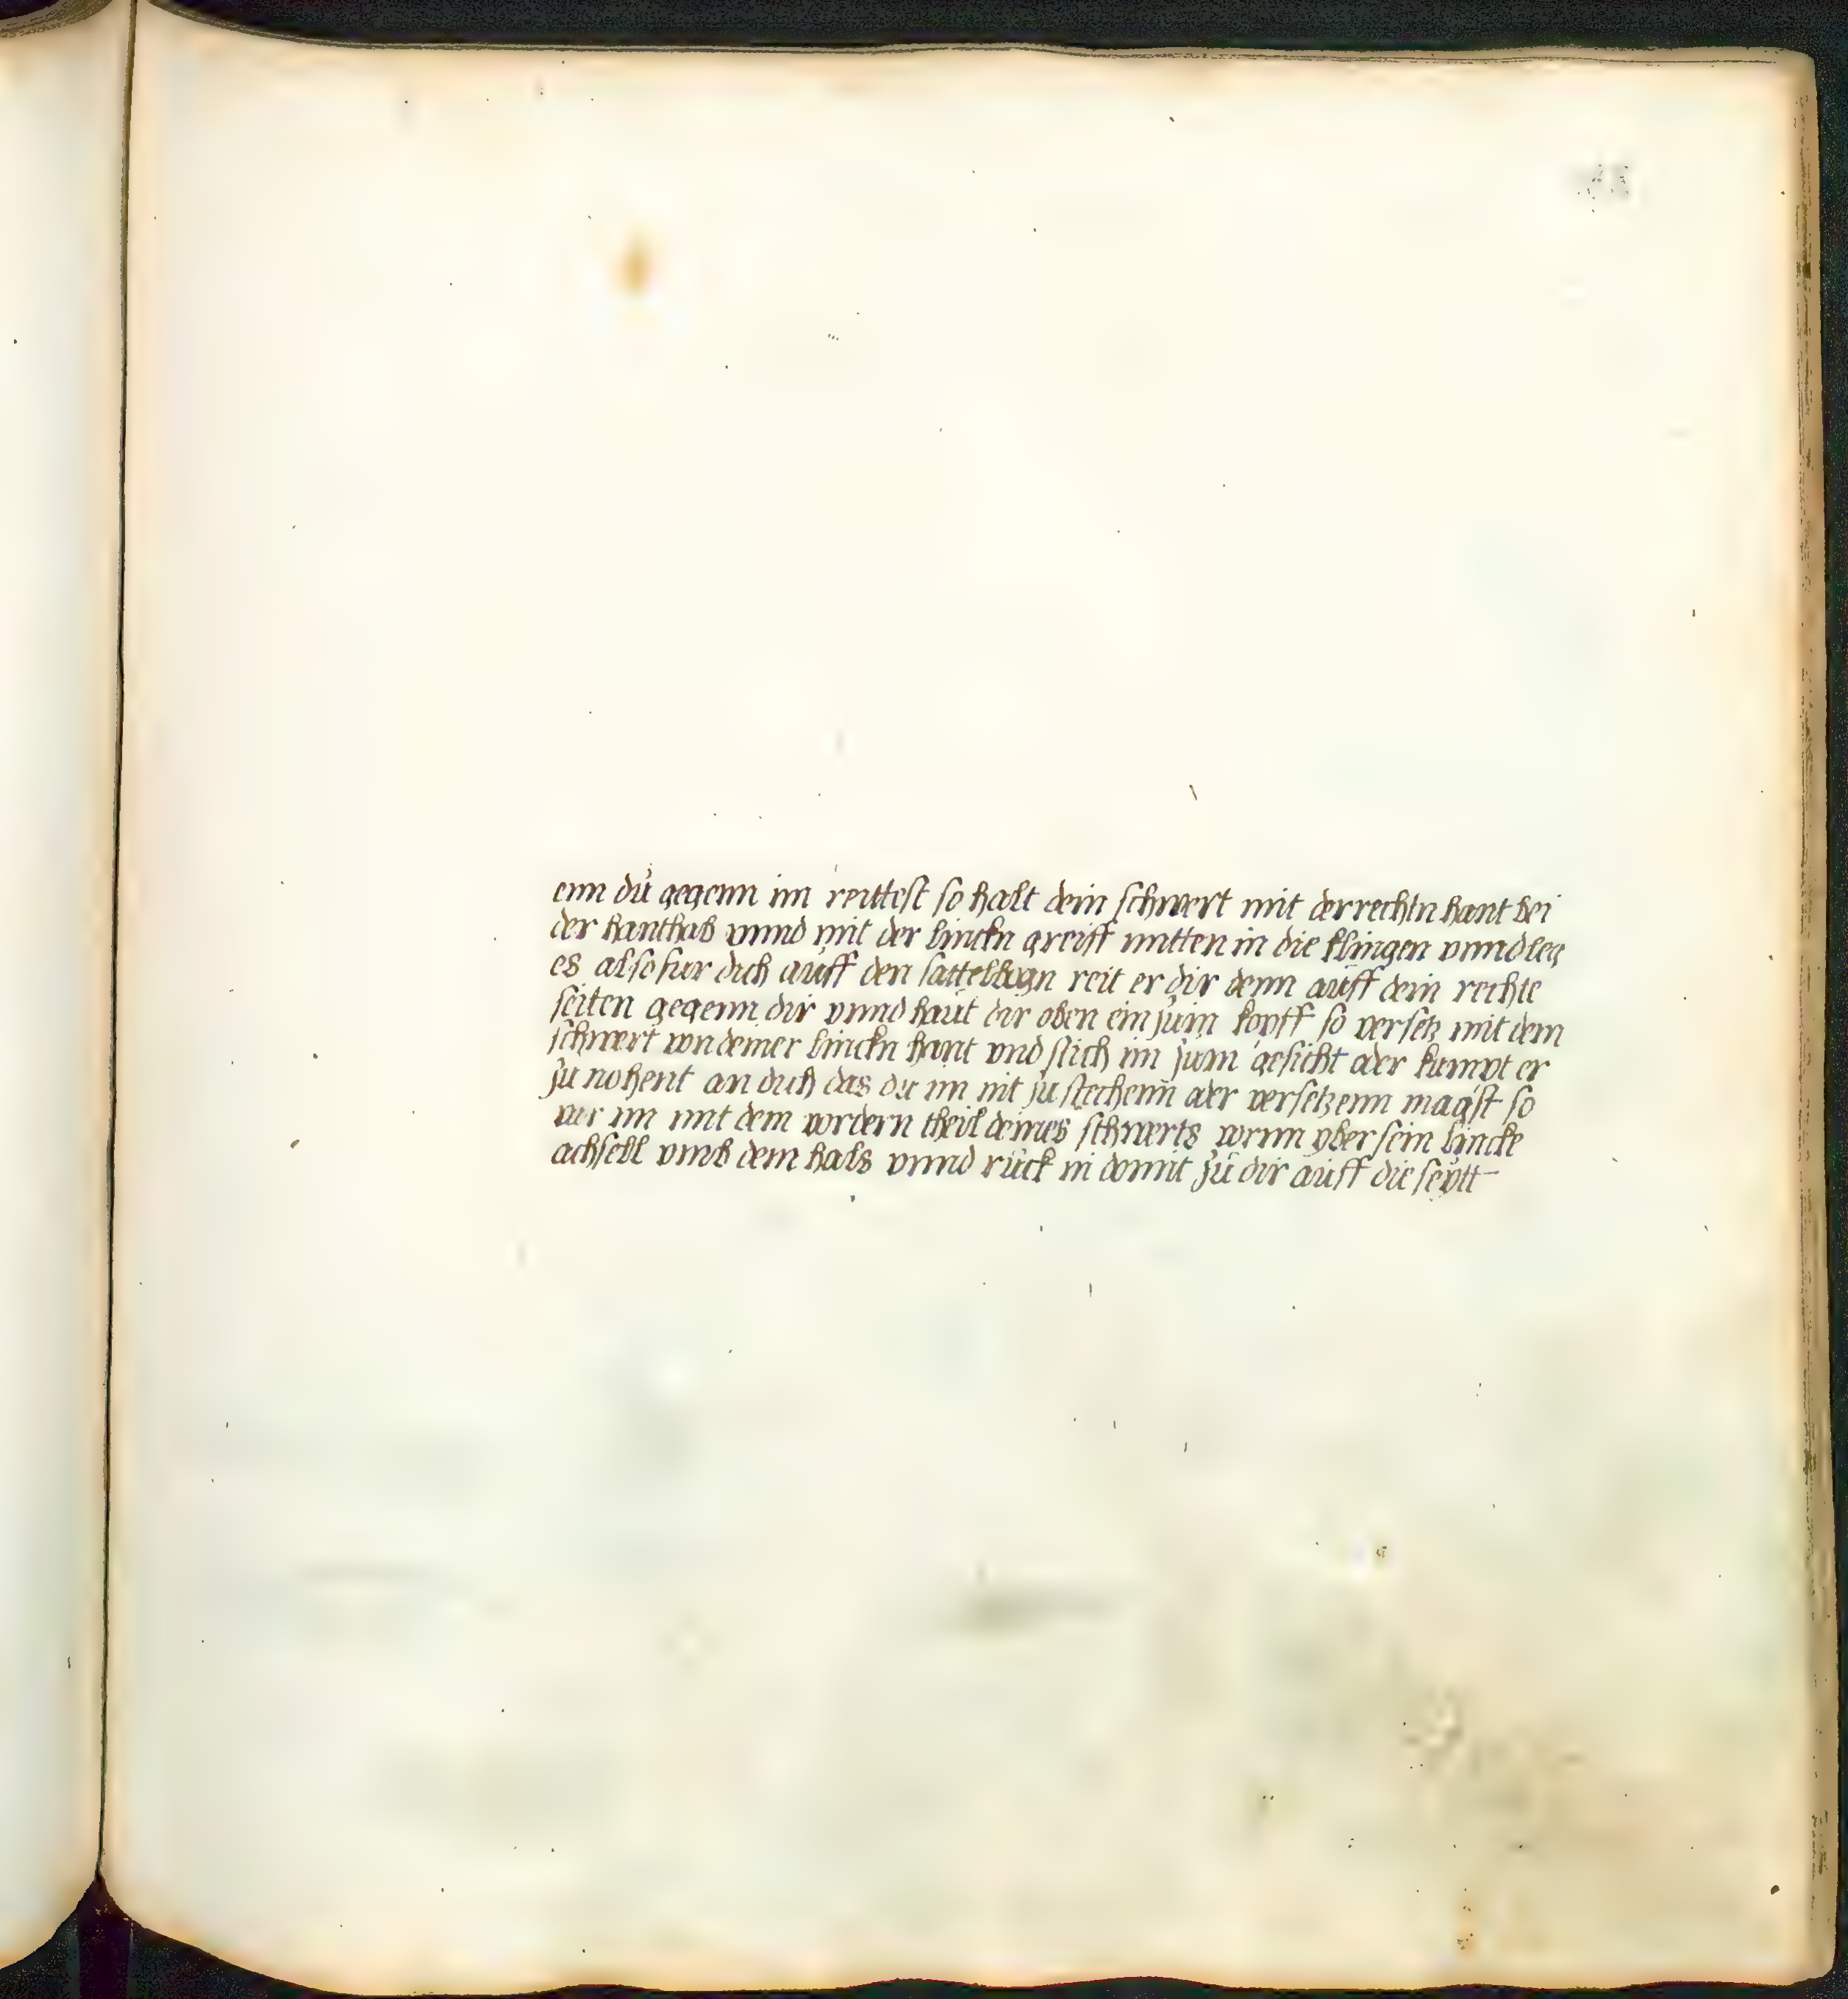 enn dü gegenn im reittest so halt dein schwert mit der rechtn hant bei
der hanthab vnnd mit der linckn greiff mitten in die klingen vnnd leg
es also fur dich auff den sattelbogn reit er dir denn auff dein rechte
seiten gegenn dir vnnd haut dir oben ein zum kopff so versetz mit dem
schwert von deiner linckn hant vnd stich im zum gesicht oder kumpt er
zu nohent an dich das du im nit zu stechenn oder versetzenn magst so
var im mit dem vordern theil deines schwerts vornn vber sein lincke
achsell vmb dem hals vnnd rück in domit zü dir auff die seytt